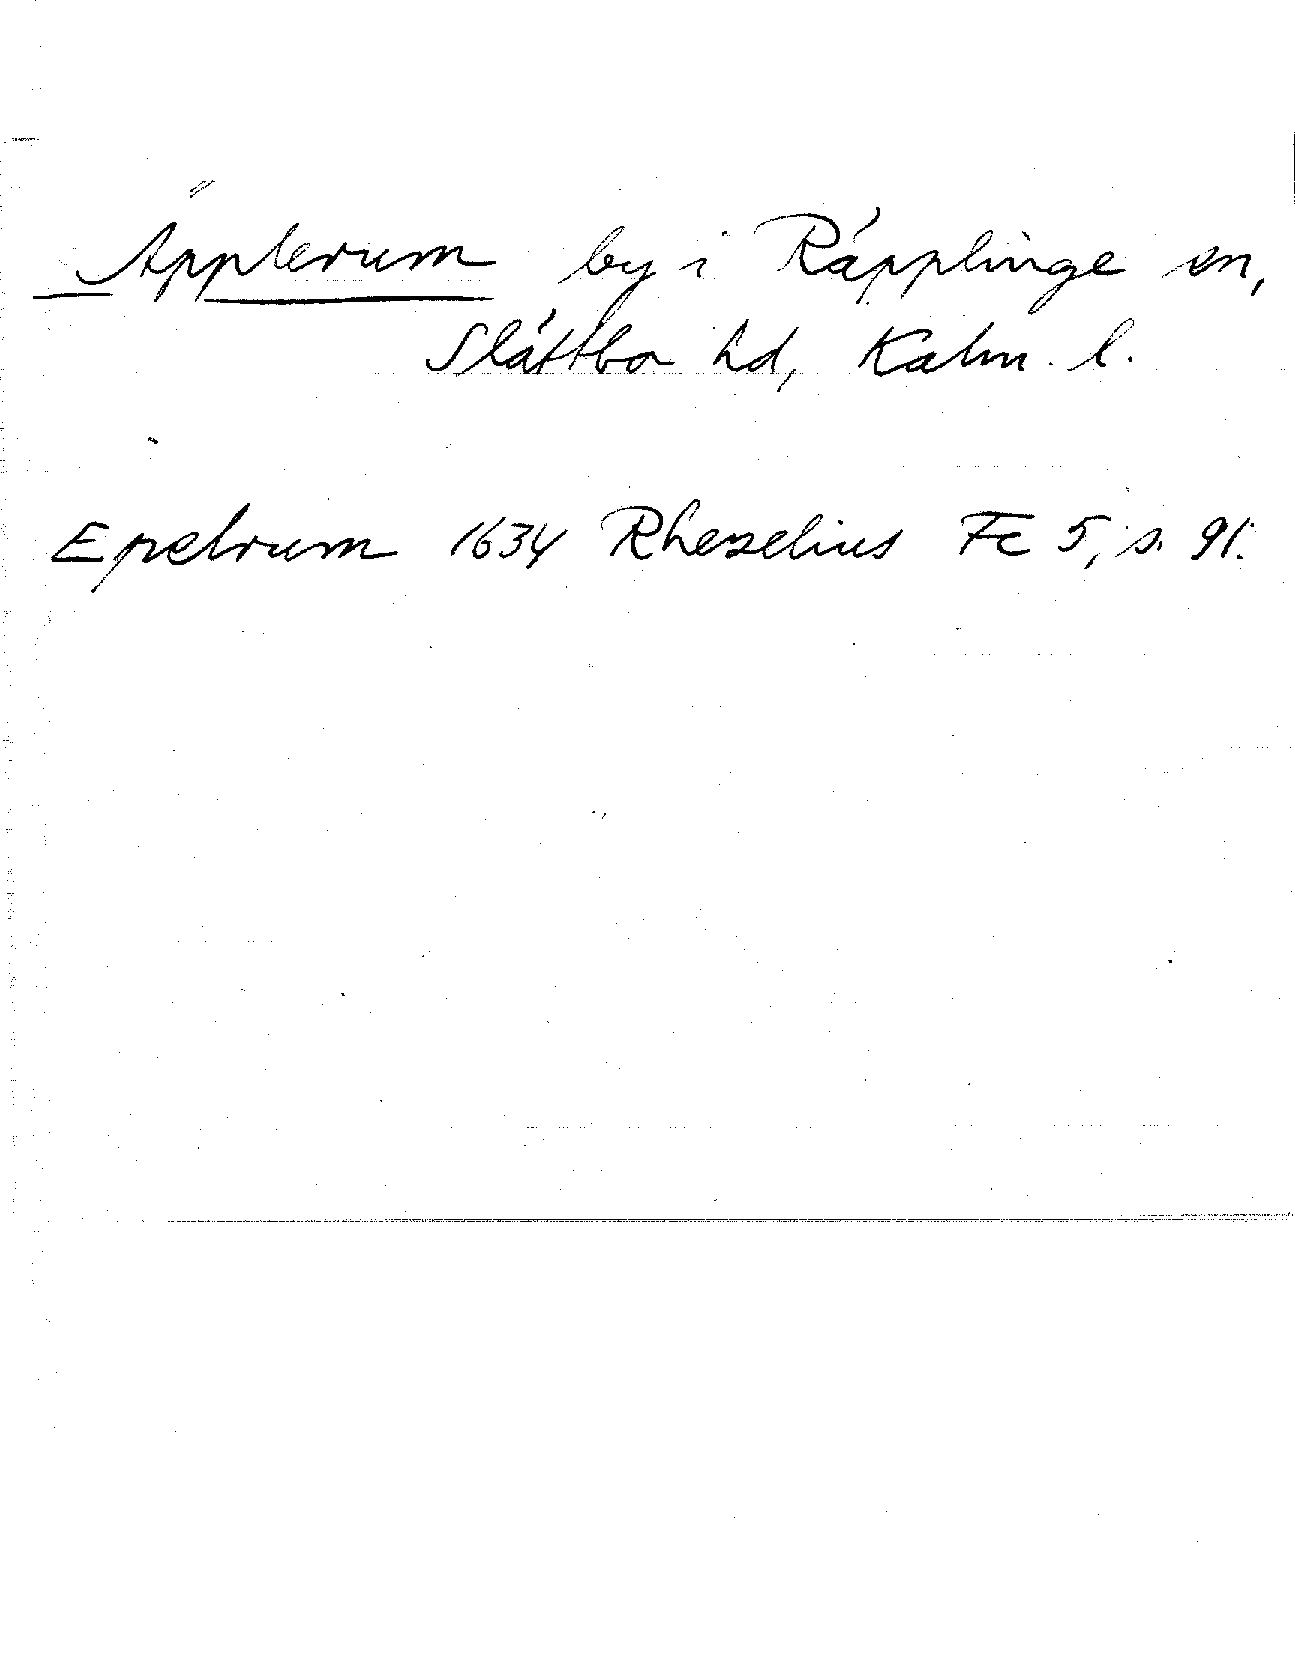 Äpplerum by i Räpplinge sn,
Slättbo hd, Kalm. l.
Epelrum 1634 Rhezelius Fc 5, s. 91.